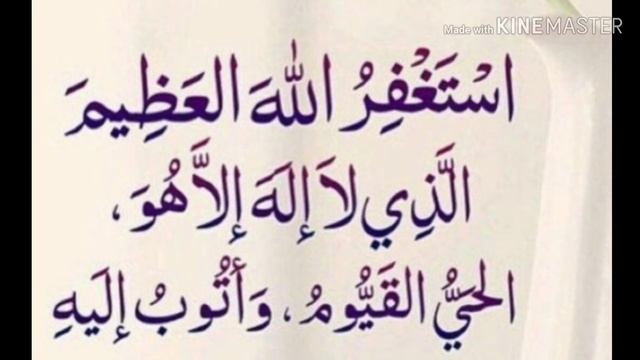 Made with KINEMASTER
اسْتَغْفِرُ اللهَ العَظِيمَ
الَّذِي لاَ إلَهَ إلاَّ هُوَ،
الحَيُّ القَيُّومُ، وَأَتُوبُ إلَيهِ